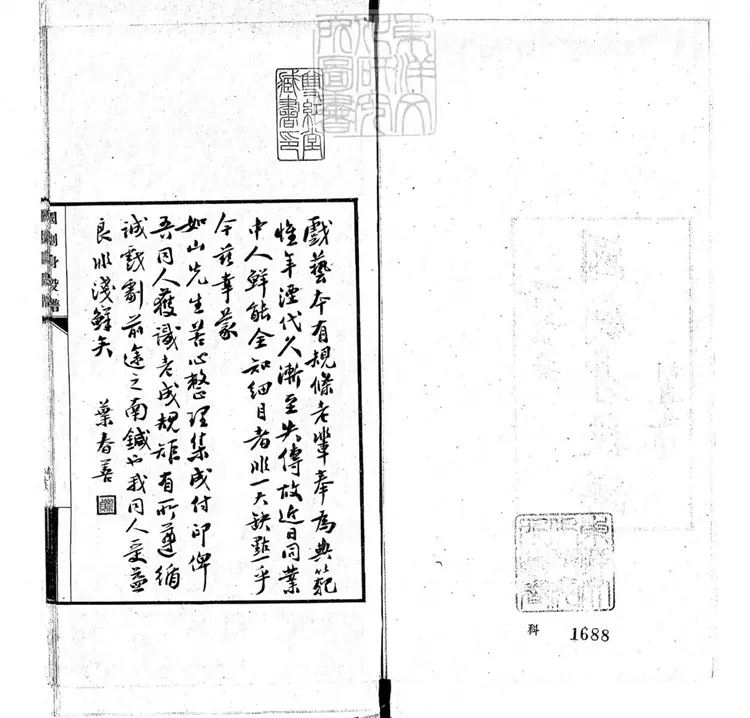 東洋文
化研究
所圖書
雙紅堂
藏書印
戲藝本有規條老輩奉為典範
惟年湮代久漸至失傳故近日同業
中人鮮能全知細目者非一大缺點乎
今茲幸蒙
如山先生苦心整理集成付印俾
吾同人獲識老成規矩有所遵循
誠戲劇前途之南鍼也我同人受益
良非淺鮮矣 葉春善
國劇身段譜
科 1688